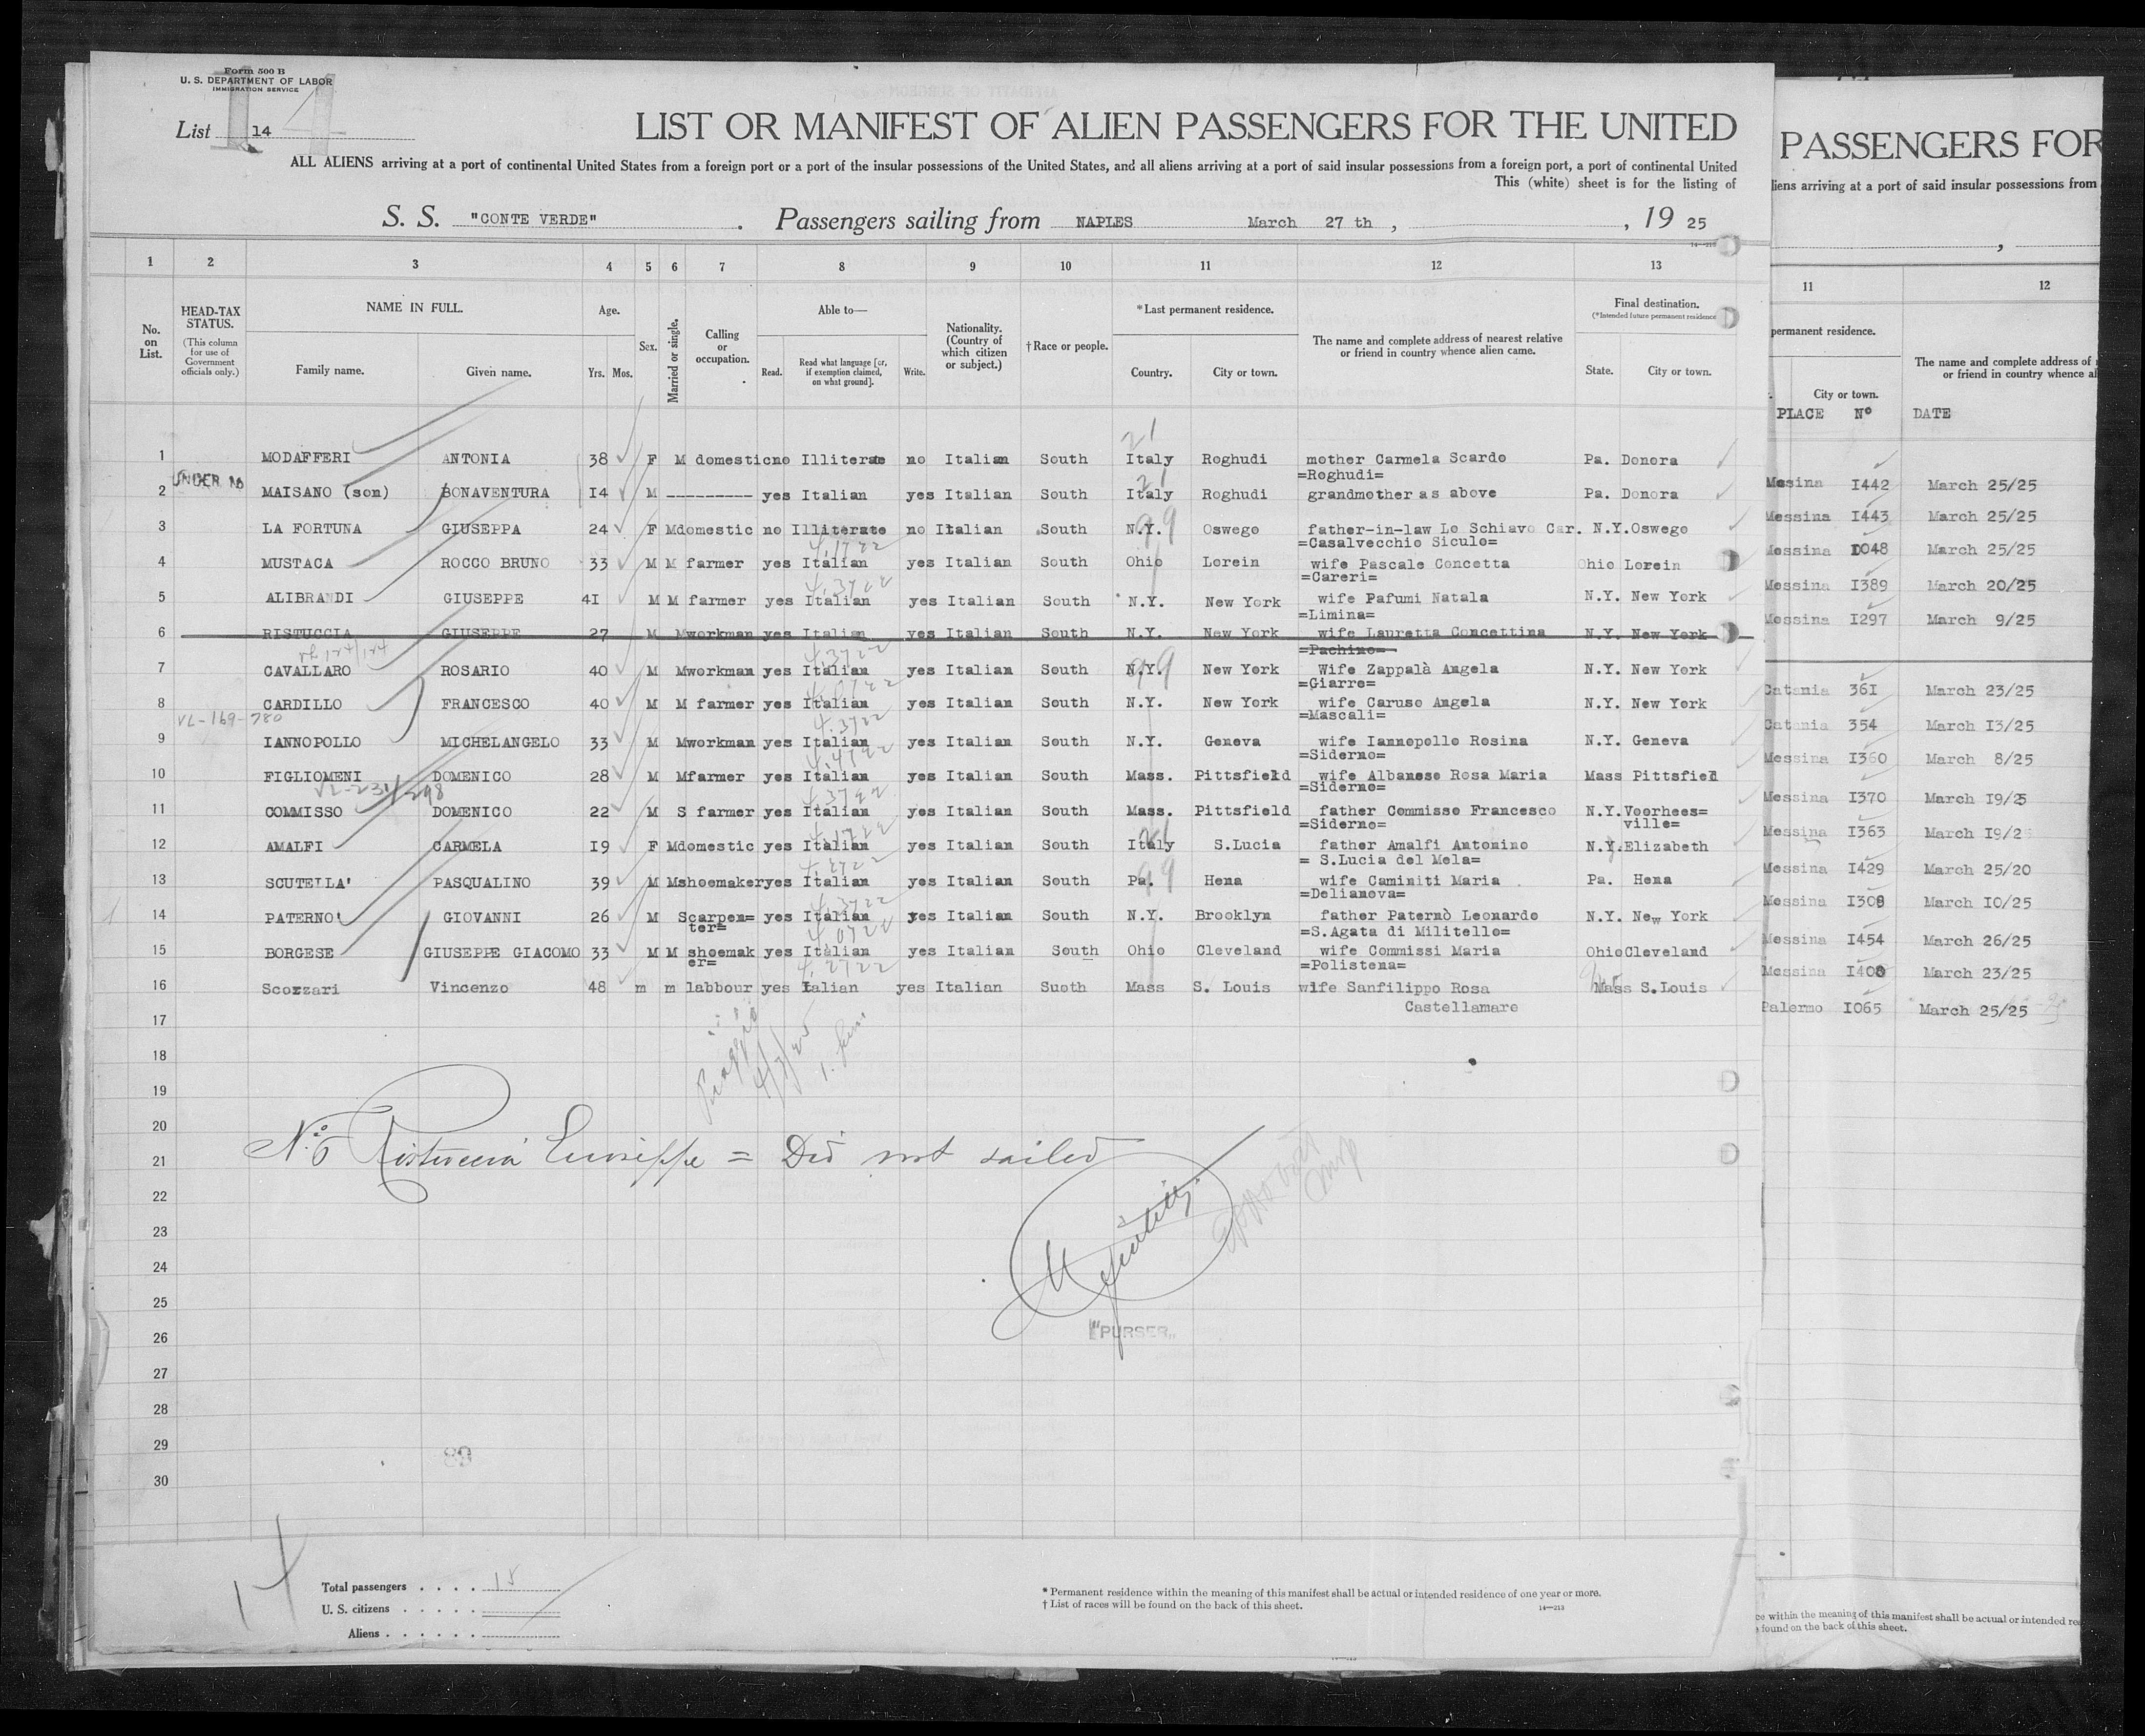 Form 500 B
U. S. DEPARTMENT OF LABOR
IMMIGRATION SERVICE
14
List 14
LIST OR MANIFEST OF ALIEN PASSENGERS FOR THE UNITED
ALL ALIENS arriving at a port of continental United States from a foreign port or a port of the insular possessions of the United States, and all aliens arriving at a port of said insular possessions from a foreign port, a port of continental United
This (white) sheet is for the listing of
S. S. "CONTE VERDE" . Passengers sailing from NAPLES March 27 th , , 19 25
1 2 3 4 5 6 7 8 9 10 11 12 13
No. on List.
HEAD-TAX STATUS. (This column for use of Government officials only.)
NAME IN FULL.
Family name. Given name.
Age.
Yrs. Mos.
Sex.
Married or single.
Calling or occupation.
Able to—
Read. Read what language [or, if exemption claimed, on what ground]. Write.
Nationality. (Country of which citizen or subject.)
† Race or people.
*Last permanent residence.
Country. City or town.
The name and complete address of nearest relative or friend in country whence alien came.
Final destination.
(*Intended future permanent residence
State. City or town.
21
1 MODAFFERI ANTONIA 38 F M domestic no Illiterate no Italian South Italy Roghudi mother Carmela Scardo Pa. Donora
=Roghudi=
UNDER 16
21
2 MAISANO (son) BONAVENTURA I4 M --------- yes Italian yes Italian South Italy Roghudi grandmother as above Pa. Donora
3 LA FORTUNA GIUSEPPA 24 F M domestic no Illiterate no Italian South N.Y. 99 Oswego father-in-law Lo Schiavo Car. N.Y. Oswego
=Casalvecchio Siculo=
4 MUSTACA ROCCO BRUNO 33 M M farmer yes Italian yes Italian South Ohio Lorein wife Pascale Concetta Ohio Lorein
=Careri=
5 ALIBRANDI GIUSEPPE 4I M M farmer yes Italian yes Italian South N.Y. New York wife Pafumi Natala N.Y. New York
=Limina=
6 RISTUCCIA GIUSEPPE 27 M M workman yes Italian yes Italian South N.Y. New York wife Lauretta Concettina N.Y. New York
=Pachino=
7 CAVALLARO ROSARIO 40 M M workman yes Italian yes Italian South N.Y. 99 New York Wife Zappalà Angela N.Y. New York
=Giarre=
8 CARDILLO FRANCESCO 40 M M farmer yes Italian yes Italian South N.Y. New York wife Caruso Angela N.Y. New York
=Mascali=
VL-169-780
9 IANNOPOLLO MICHELANGELO 33 M M workman yes Italian yes Italian South N.Y. Geneva wife Iannopollo Rosina N.Y. Geneva
=Siderno=
10 FIGLIOMENI DOMENICO 28 M M farmer yes Italian yes Italian South Mass. Pittsfield wife Albanese Rosa Maria Mass Pittsfied
=Siderno=
11 COMMISSO DOMENICO 22 M S farmer yes Italian yes Italian South Mass. Pittsfield father Commisso Francesco N.Y. Voorhees=
=Siderno= ville=
12 AMALFI CARMELA I9 F M domestic yes Italian yes Italian South Italy 21 S.Lucia father Amalfi Antonino N.Y. Elizabeth
= S.Lucia del Mela=
13 SCUTELLA' PASQUALINO 39 M M shoemaker yes Italian yes Italian South Pa. 99 Hena wife Caminiti Maria Pa. Hena
=Delianova=
14 PATERNO' GIOVANNI 26 M S carpen= yes Italian yes Italian South N.Y. Brooklyn father Paternò Leonardo N.Y. New York
ter= =S.Agata di Militello=
15 BORGESE GIUSEPPE GIACOMO 33 M M shoemak yes Italian yes Italian South Ohio Cleveland wife Commissi Maria Ohio Cleveland
er= =Polistena=
16 Scozzari Vincenzo 48 m m labbour yes Italian yes Italian Suoth Mass S. Louis wife Sanfilippo Rosa Mass S.Louis
Castellamare
17
18
19
20
21
22
23
24
25
26
27
28
29
30
No. 6 Ristuccia Giuseppe = Did not sailed
"PURSER"
14
Total passengers . . . . 15
U. S. citizens . . . . .
Aliens . . . . . .
* Permanent residence within the meaning of this manifest shall be actual or intended residence of one year or more.
† List of races will be found on the back of this sheet.
14—213
PASSENGERS FOR
liens arriving at a port of said insular possessions from
11 12
permanent residence.
City or town.
The name and complete address of
or friend in country whence al
PLACE Nº DATE
Messina I442 March 25/25
Messina I443 March 25/25
Messina D048 March 25/25
Messina I389 March 20/25
Messina I297 March 9/25
Catania 36I March 23/25
Catania 354 March I3/25
Messina I360 March 8/25
Messina I370 March I9/25
Messina I363 March I9/2
Messina I429 March 25/20
Messina I308 March I0/25
Messina I454 March 26/25
Messina I408 March 23/25
Palermo I065 March 25/25
ce within the meaning of this manifest shall be actual or intended res
found on the back of this sheet.